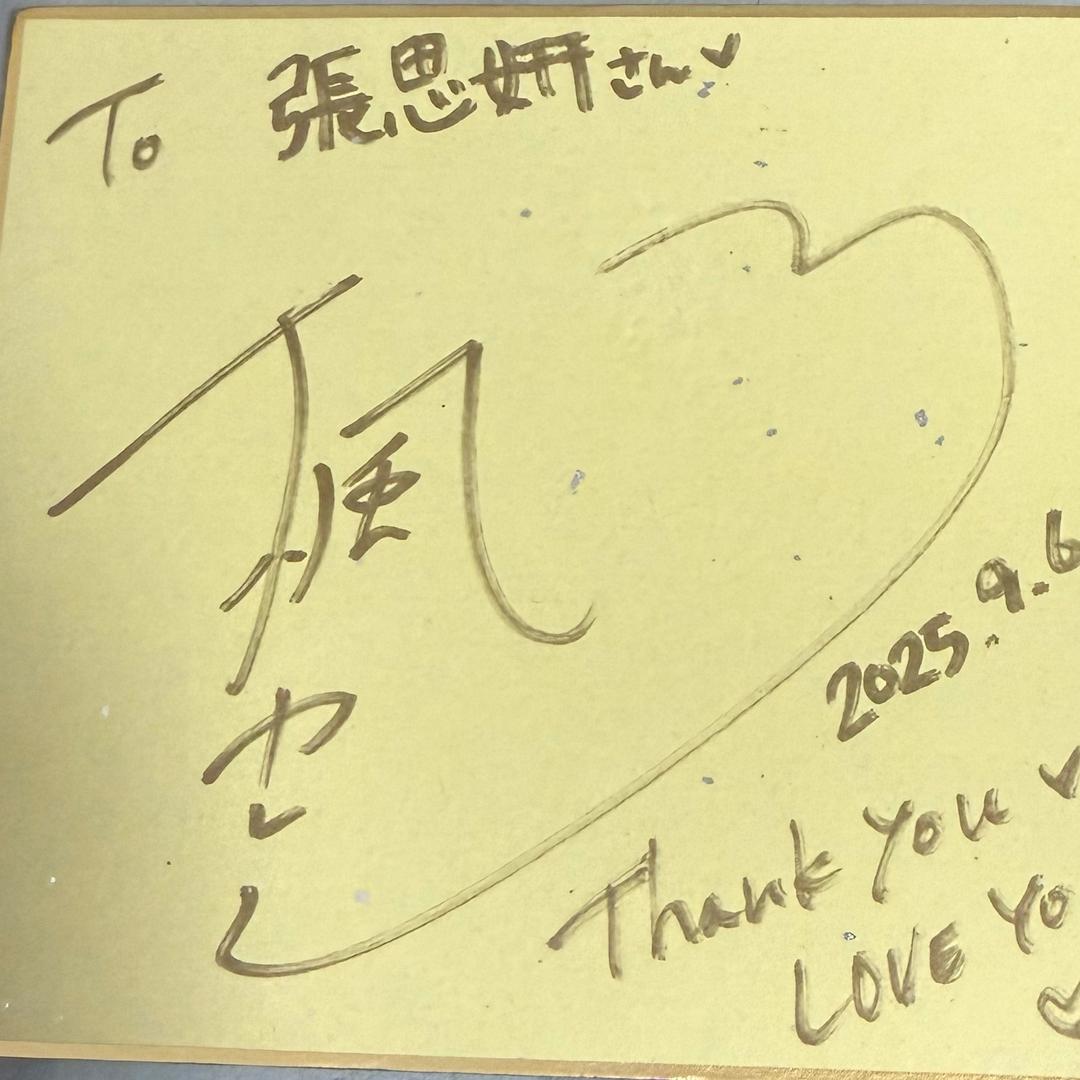 To 張思妍さん♥
楓
2025.9.6
Thank You ♥
LOVE YO
♥